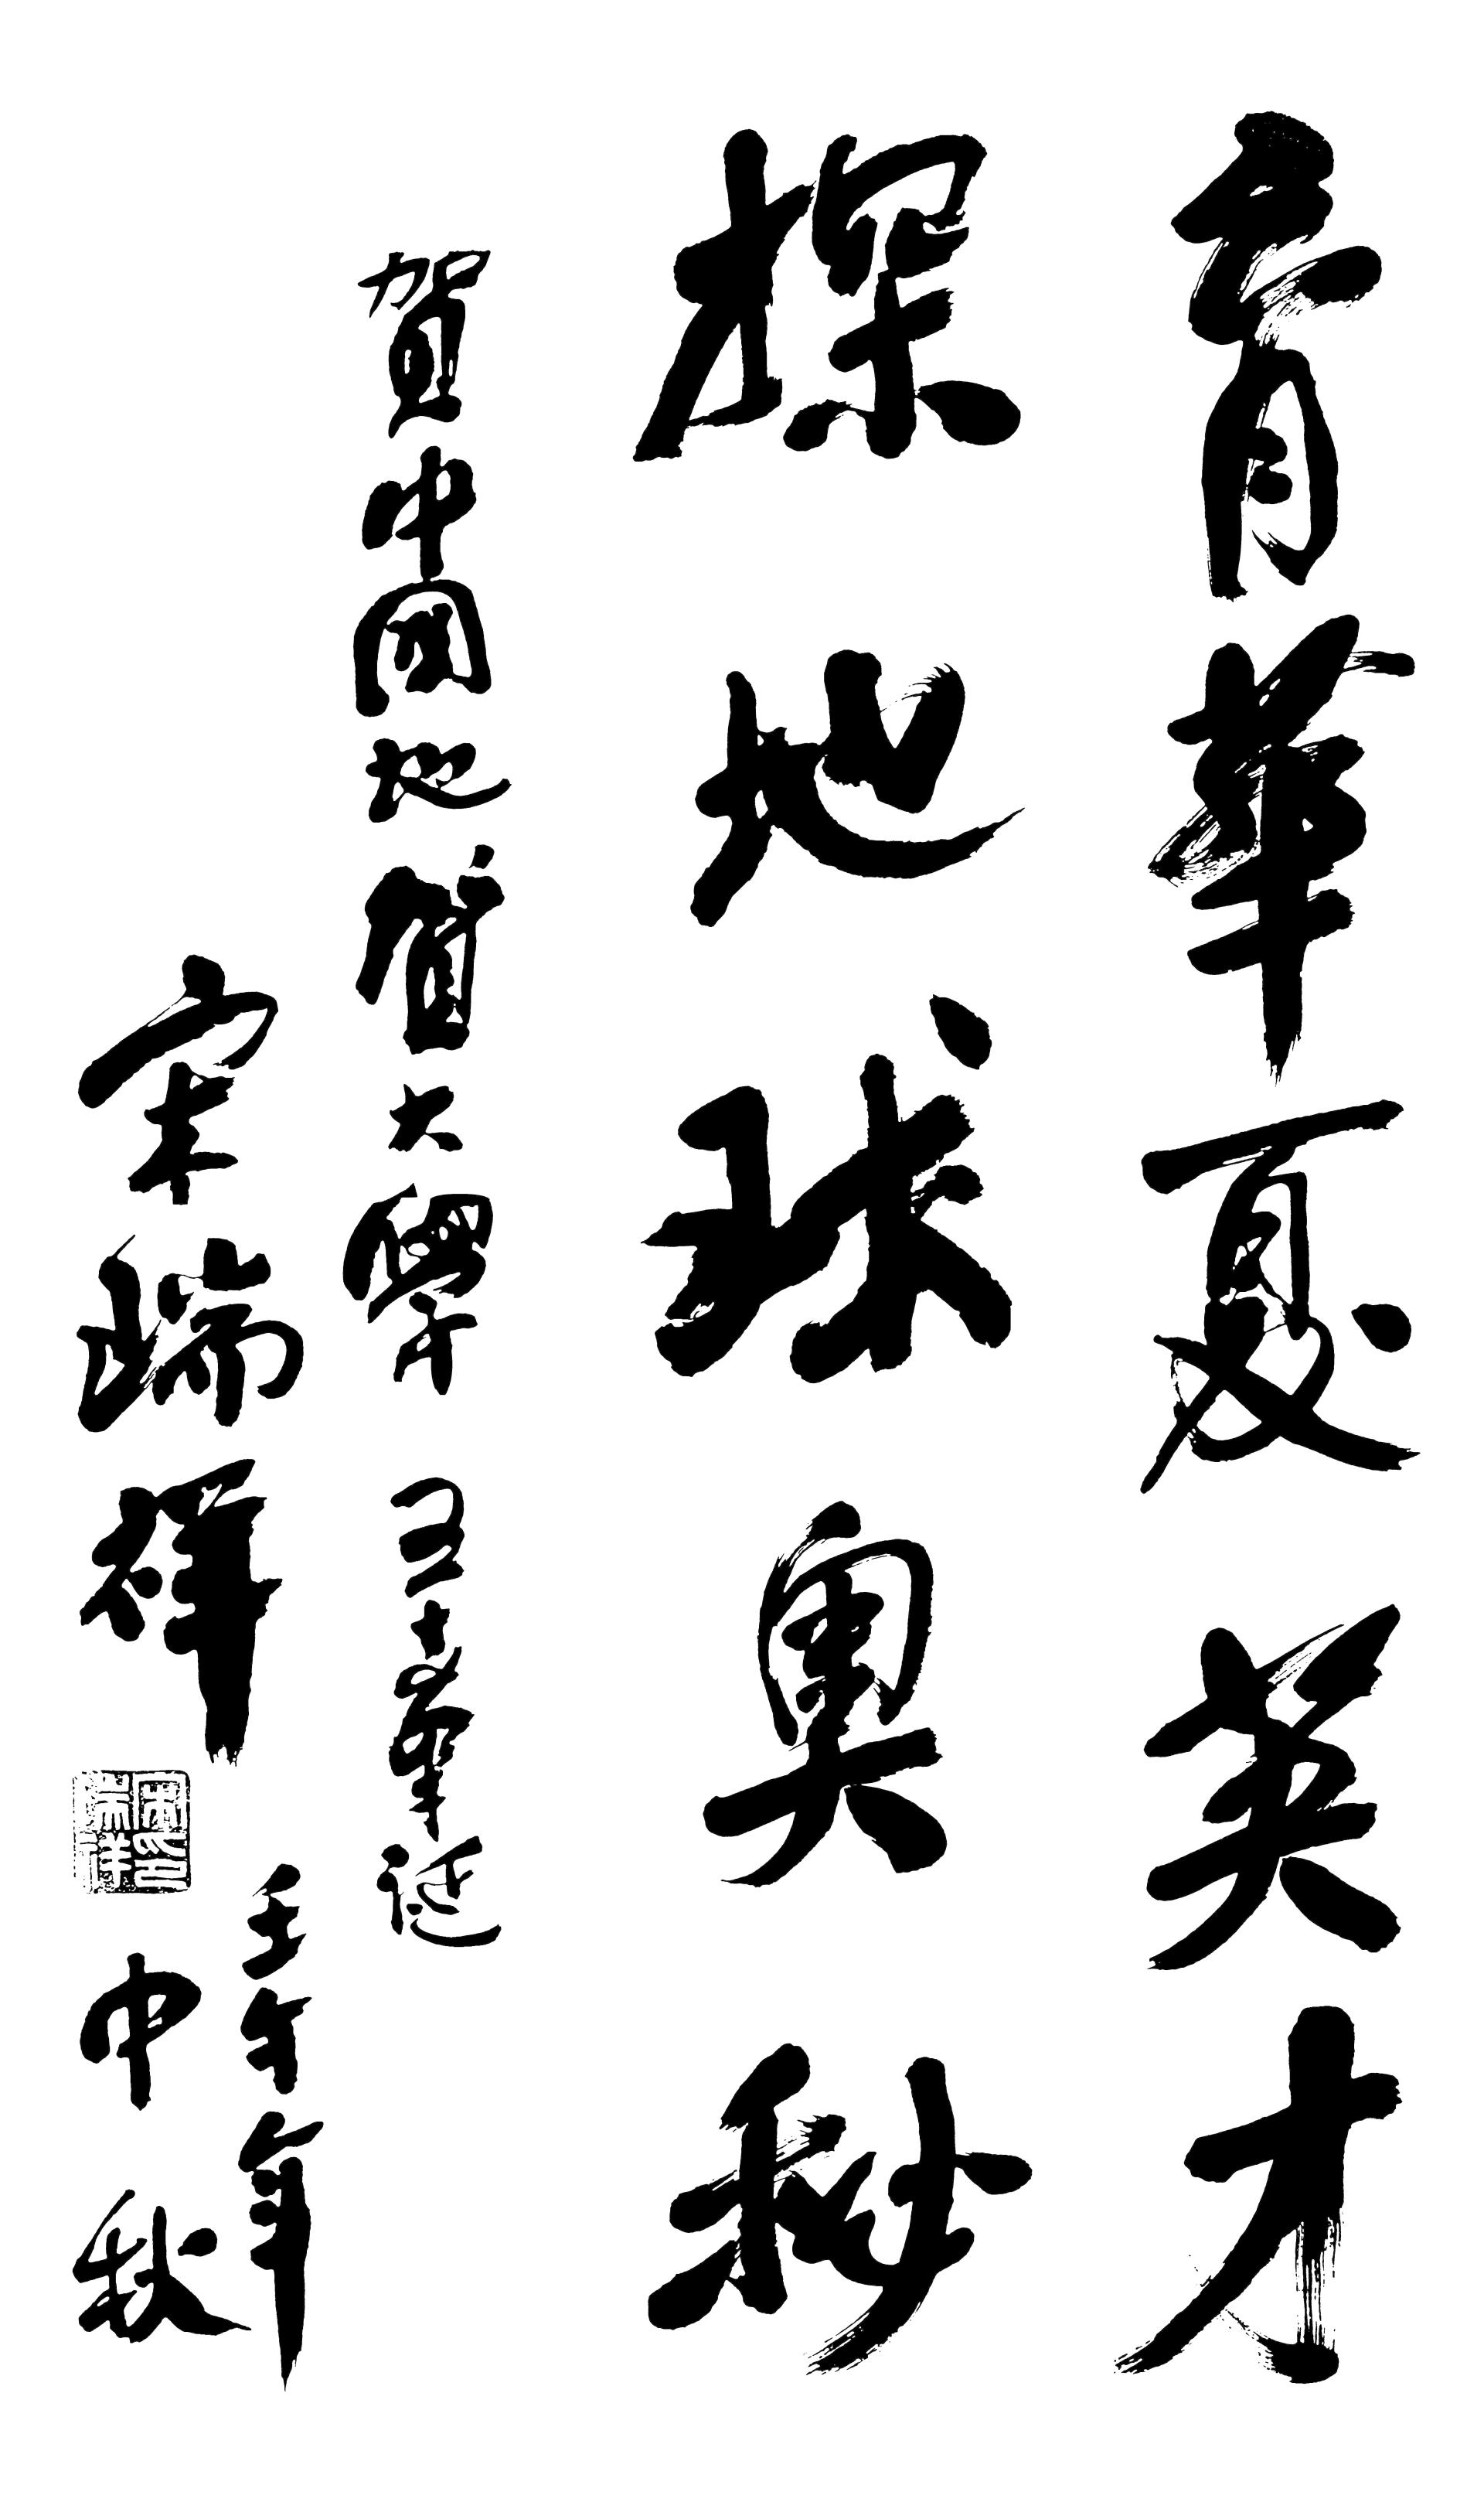 育華夏英才
探地球奥秘
賀中國地質大學五十華誕
宋瑞祥
壬午年
中秋